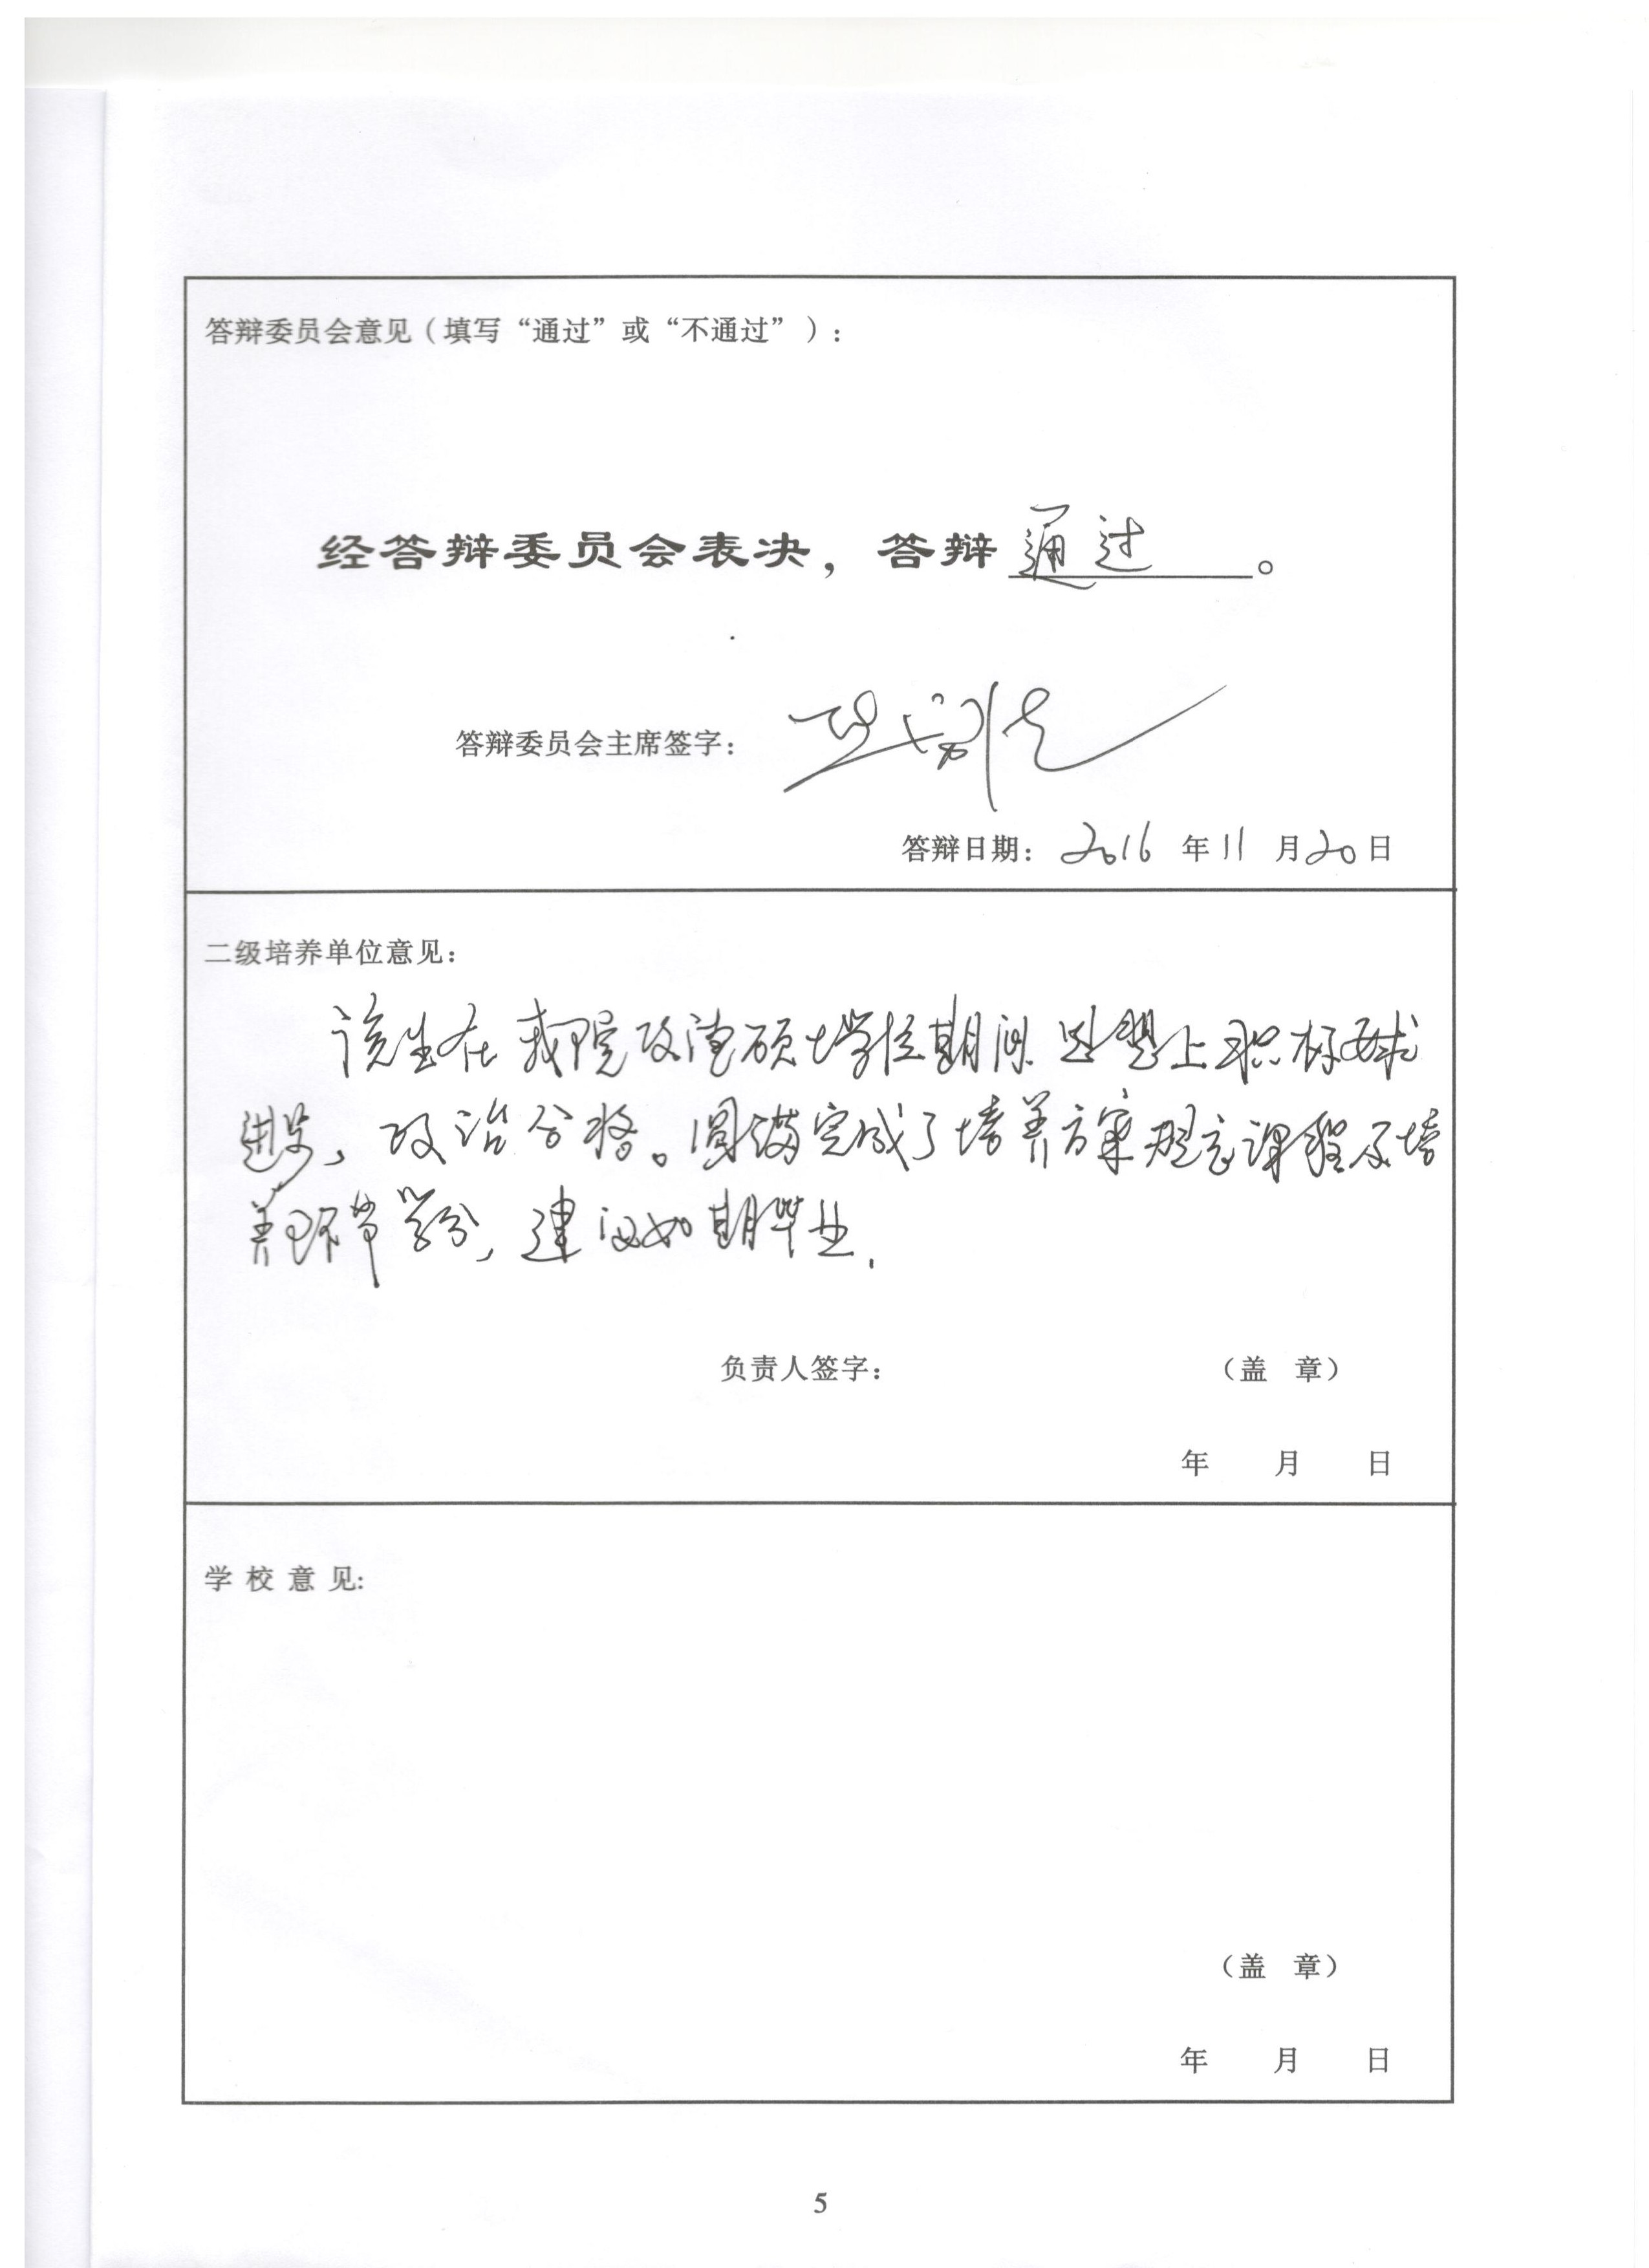 答辩委员会意见（填写“通过”或“不通过”）：
经答辩委员会表决，答辩 通过 。
答辩委员会主席签字：
答辩日期：2016 年 11 月 20 日
二级培养单位意见：
该生在我院攻读硕士学位期间 思想上积极要求
进步，政治合格。圆满完成了培养方案规定课程及培
养环节学分，建议如期毕业.
负责人签字： （盖 章）
年 月 日
学 校 意 见:
（盖 章）
年 月 日
5